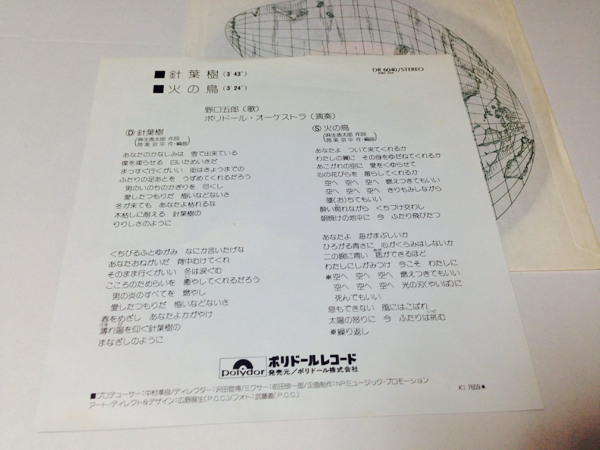 ■針葉樹(3′43″)
■火の鳥(3′24″)
DR 6040/STEREO
野口五郎(歌)
ポリドール・オーケストラ(演奏)
Ⓓ針葉樹
(麻生香太郎 作詞
筒美京平 作・編曲)
あなたのかなしみは 雪で出来ている
身を凍らせる 白いためいきだ
まっすぐ行くがいい 街はきょうまでの
ふたりの足あとを うずめてくれるだろう
男のいのちのかぎりを 尽くし
愛したつもりだ 悔いなどないさ
冬が来ても あなたよ枯れるな
木枯しに耐える 針葉樹の
りりしさのように
くちびるふとゆがみ なにか言いたげな
あなたおねがいだ 背中むけてくれ
そのまま行くがいい 冬は涙ぐむ
こころのためらいを 癒やしてくれるだろう
男の炎のすべてを 燃やし
愛したつもりだ 悔いなどないさ
春をめざし あなたよかがやけ
薄れ陽を仰ぐ針葉樹の
まなざしのように
Ⓢ火の鳥
(麻生香太郎 作詞
筒美京平 作・編曲)
あなたよ ついて来てくれるか
わたしの翼に その身をゆだねてくれるか
あこがれの空に 愛をくゆらせて
心の花びらを 散らしてくれるか
空へ 空へ 空へ 燃えつきてもいい
空へ 空へ 空へ きりもみしながら
堕(お)ちてもいい
酔い痴れながら くちづけ交わし
朝焼けの地平に 今 ふたり飛びたつ
あなたよ 陽がまぶしいか
ひろがる青さに 心がくらみはしないか
二の腕に青い 痣ができるほど
わたしにしがみつけ 今こそ わたしに
※空へ 空へ 空へ 燃えつきてもいい
空へ 空へ 空へ 光の刃(やいば)に
死んでもいい
息もできない 風にはこばれ
太陽の怒りに 今 ふたりは挑む
※繰り返し
Polydor
ポリドールレコード
発売元/ポリドール株式会社
■プロデューサー:中村準良/ディレクター:沢田哲博/ミクサー:前田欣一郎/企画制作:NPミュージック・プロモーション
アート・ディレクト&デザイン:広野展生(P.C.C.)/フォト:武藤義(P.C.C.)